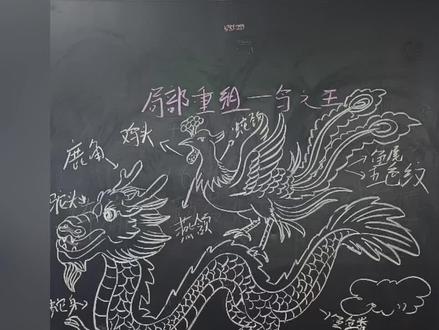 局部重组—鸟之王
鸡头
蛇颈
鹿角
鱼尾
五色纹
驼头
燕颔
蛇身